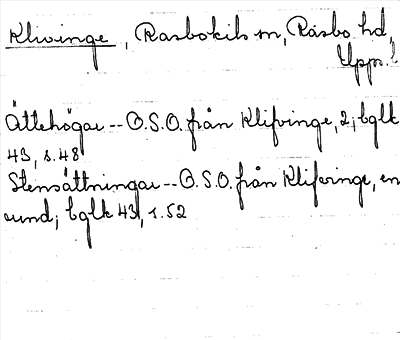 Klivinge, Rasbokils sn, Rasbo hd,
Uppl.
Ättehögar -- O.S.O. från Klifvinge, 2; bglk
43, s. 48
Stensättningar -- O.S.O. från Klifvinge, en
rund; bglk 43, s. 52